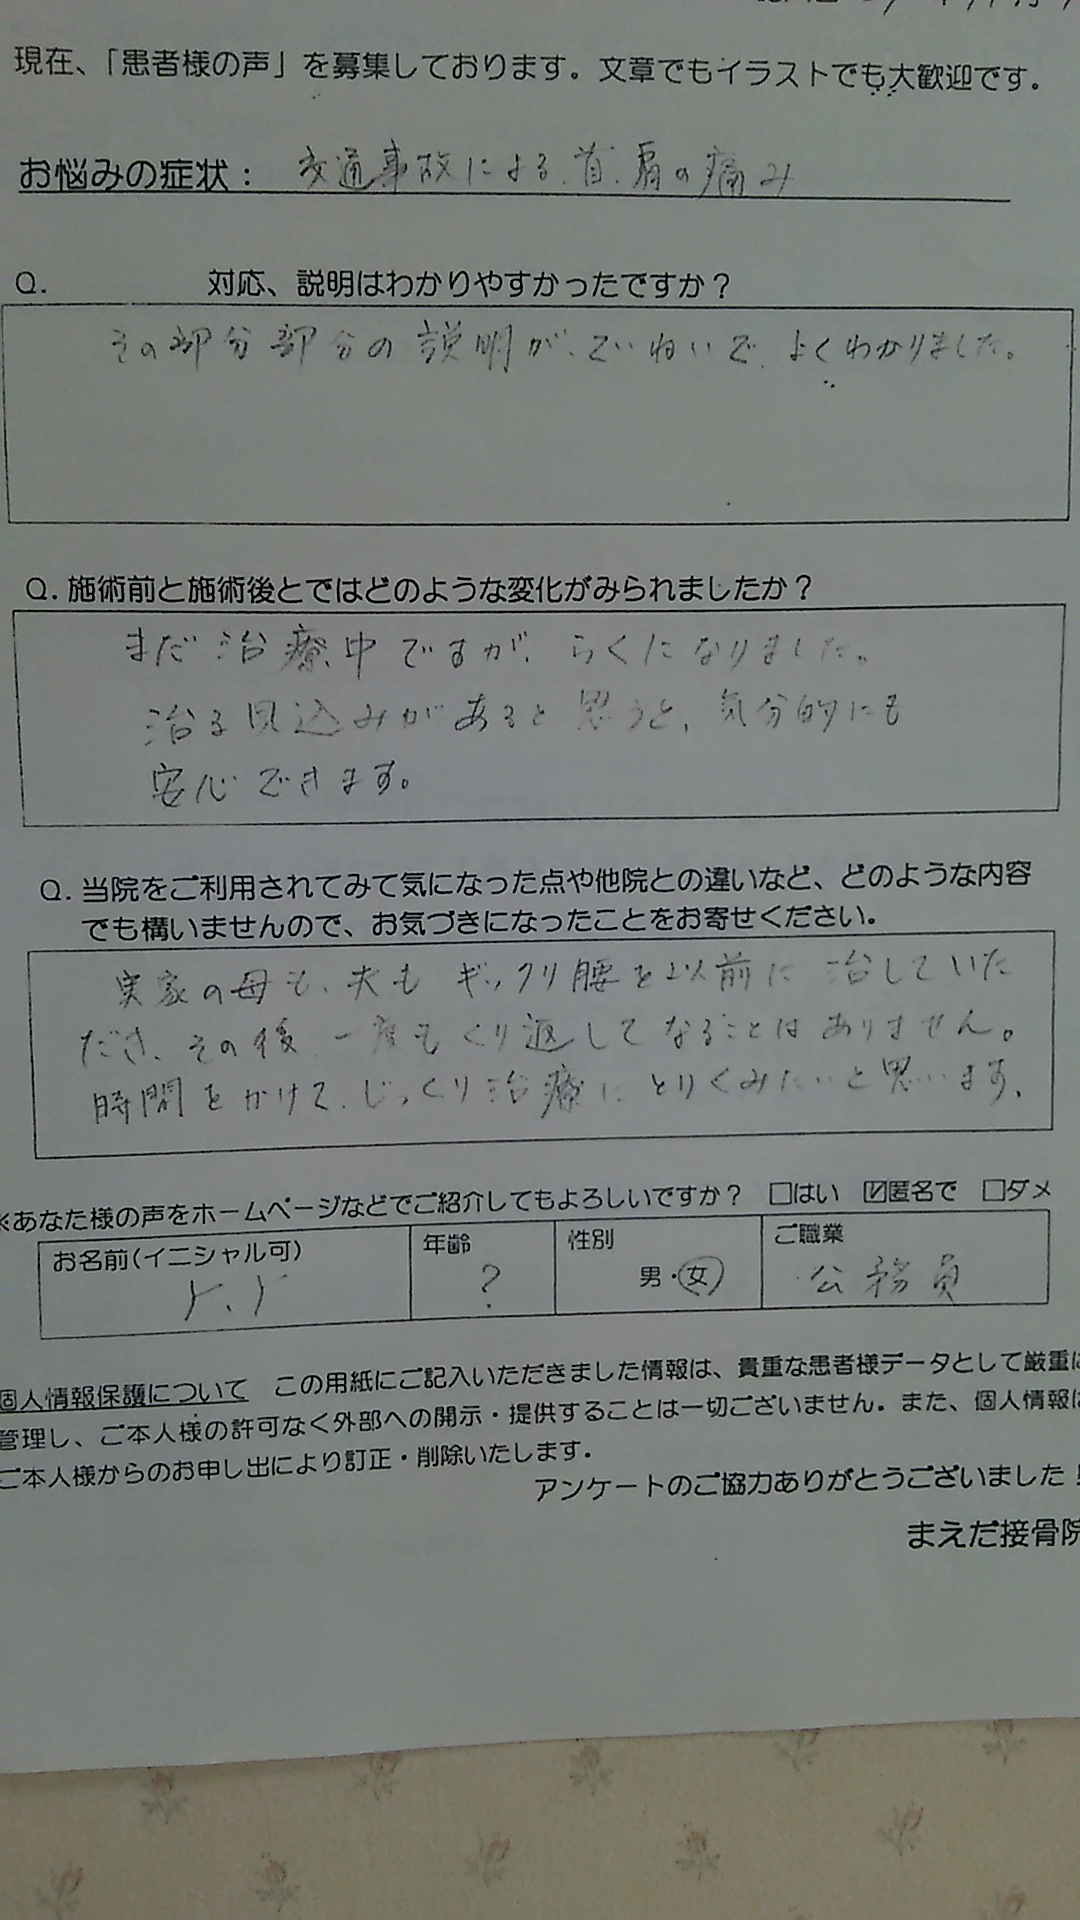 現在、「患者様の声」を募集しております。文章でもイラストでも大歓迎です。
お悩みの症状： 交通事故による、首、肩の痛み
Q. 対応、説明はわかりやすかったですか？
その部分部分の説明が、ていねいで、よくわかりました。
Q. 施術前と施術後とではどのような変化がみられましたか？
まだ治療中ですが、らくになりました。
治る見込みがあると思うと、気分的にも
安心できます。
Q. 当院をご利用されてみて気になった点や他院との違いなど、どのような内容
でも構いませんので、お気づきになったことをお寄せください。
実家の母も、夫もギックリ腰を以前に治していた
だき、その後、一度もくり返してなることはありません。
時間をかけて、じっくり治療にとりくみたいと思います。
※あなた様の声をホームページなどでご紹介してもよろしいですか？ □はい ☑匿名で □ダメ
お名前(イニシャル可) 年齢 性別 ご職業
Y.Y ? 男・女 公務員
個人情報保護について この用紙にご記入いただきました情報は、貴重な患者様データとして厳重に
管理し、ご本人様の許可なく外部への開示・提供することは一切ございません。また、個人情報は
ご本人様からのお申し出により訂正・削除いたします。
アンケートのご協力ありがとうございました！
まえだ接骨院